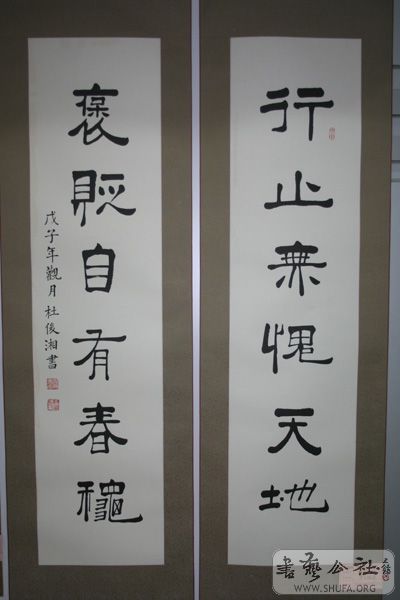 行止無愧天地
褒貶自有春龝
戊子年觀月杜俊湘書
書藝公社
WWW.SHUFA.ORG